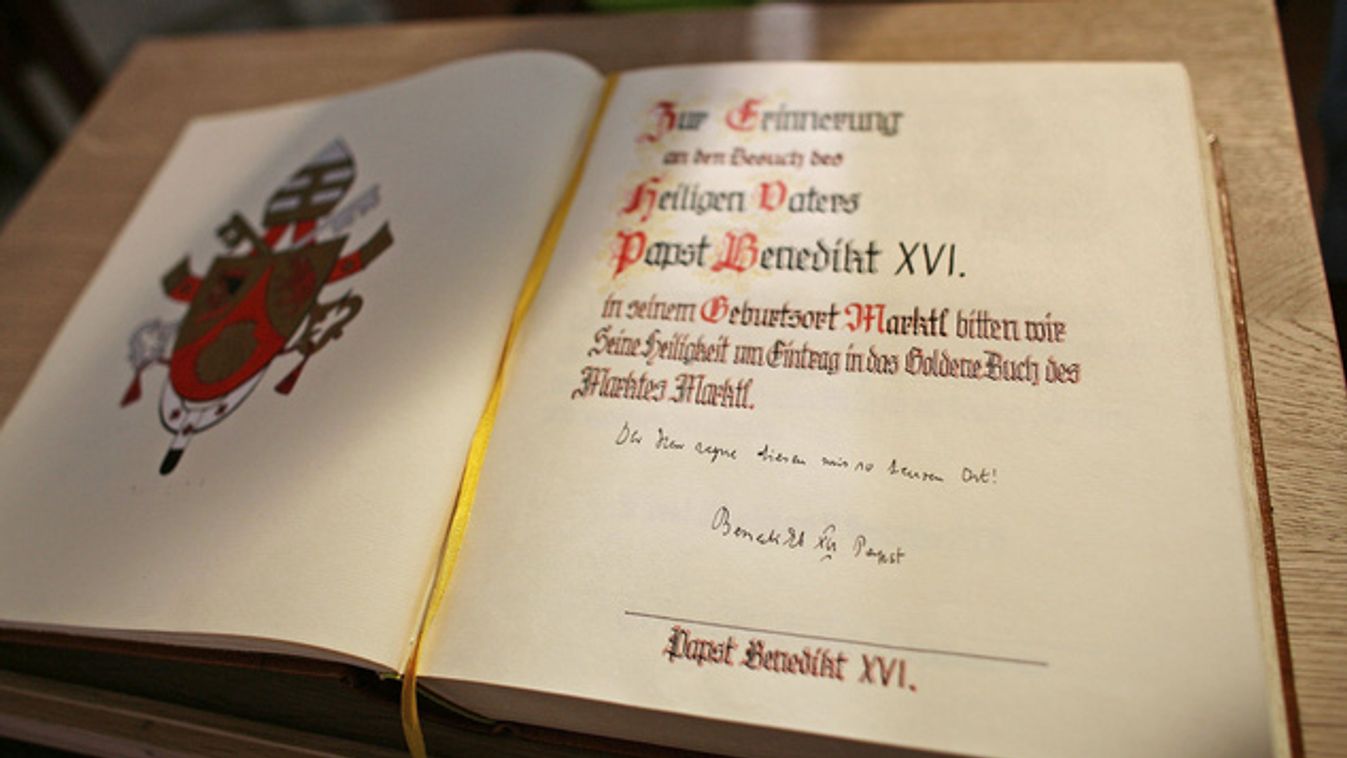 Zur Erinnerung
an den Besuch des
Heiligen Vaters
Papst Benedikt XVI.
in seinem Geburtsort Marktl bitten wir
Seine Heiligkeit um Eintrag in das Goldene Buch des
Marktes Marktl.
Der Herr segne diesen mir so teuren Ort!
Benedikt XVI Papst
Papst Benedikt XVI.